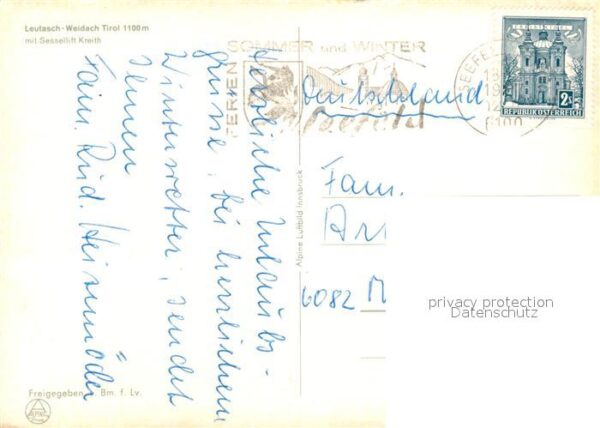 Leutasch - Weidach Tirol 1100 m
mit Sessellift Kreith
Herzliche Urlaubs-
grüsse, bei herrlichem
Winterwetter, sendet
Ihnen
Fam. Rud.
SOMMER und WINTER
FERIEN
Seefeld
SEEFELD
6100
2 S
REPUBLIK ÖSTERREICH
Deutschland
Fam.
Ar
6082 M
Alpine Luftbild Innsbruck
privacy protection
Datenschutz
Freigegeben v. Bm. f. Lv.